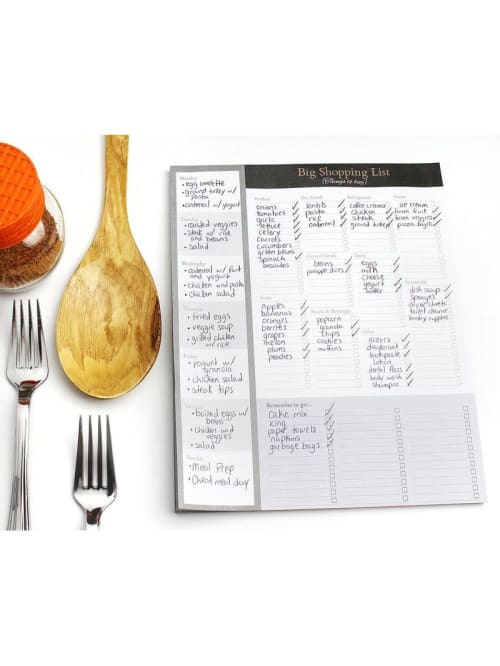 Big Shopping List
(things to buy)
Monday
• egg omelette
• ground turkey w/
pasta
• oatmeal w/ yogurt
Tuesday
• roasted veggies
• steak w/ rice
and beans
• salad
Wednesday
• oatmeal w/ fruit
and yogurt
• chicken and pasta
• chicken salad
Thursday
• fried eggs
• veggie soup
• grilled chicken
w/ rice
Friday
• yogurt w/
granola
• chicken salad
• steak tips
Saturday
• boiled eggs w/
beans
• chicken and
veggies
• salad
Sunday
• Meal Prep
• Cheat meal day
Produce
onions
tomatoes
garlic
lettuce
celery
carrots
cucumbers
green beans
spinach
avocados
Fruits
apples
bananas
oranges
berries
grapes
melon
plums
peaches
Dry Goods
lentils
pasta
rice
oatmeal
Canned Goods
beans
pineapple slices
Snacks & Beverages
popcorn
granola
chips
cookies
muffins
Refrigerated
coffee creamer
chicken
steak
ground turkey
Dairy
eggs
milk
cheese
yogurt
butter
Other
razors
deodorant
toothpaste
lotion
dental floss
body wash
shampoo
Frozen
ice cream
frozen fruit
frozen veggies
pizza bagels
Household
dish soap
sponges
dryer sheets
toilet cleaner
laundry supplies
Remember to get...
cake mix
icing
paper towels
napkins
garbage bags